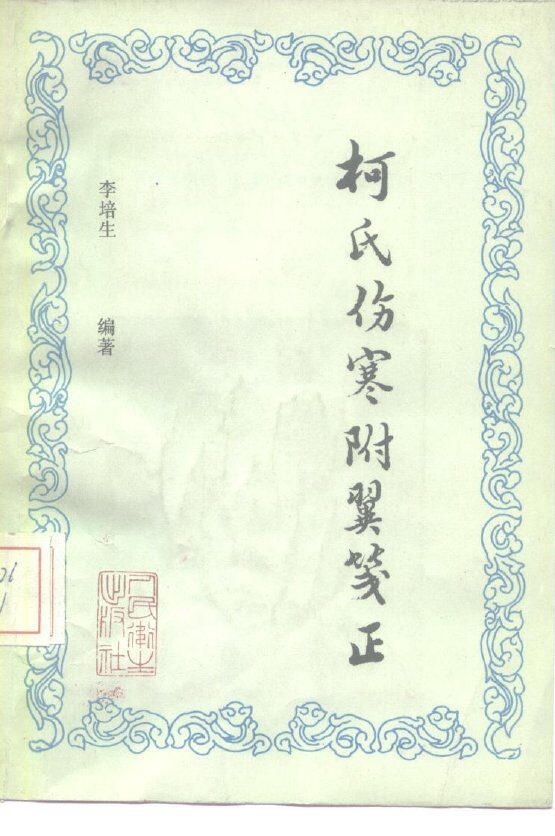 柯氏伤寒附翼笺正
李培生 编著
人民卫生
出版社